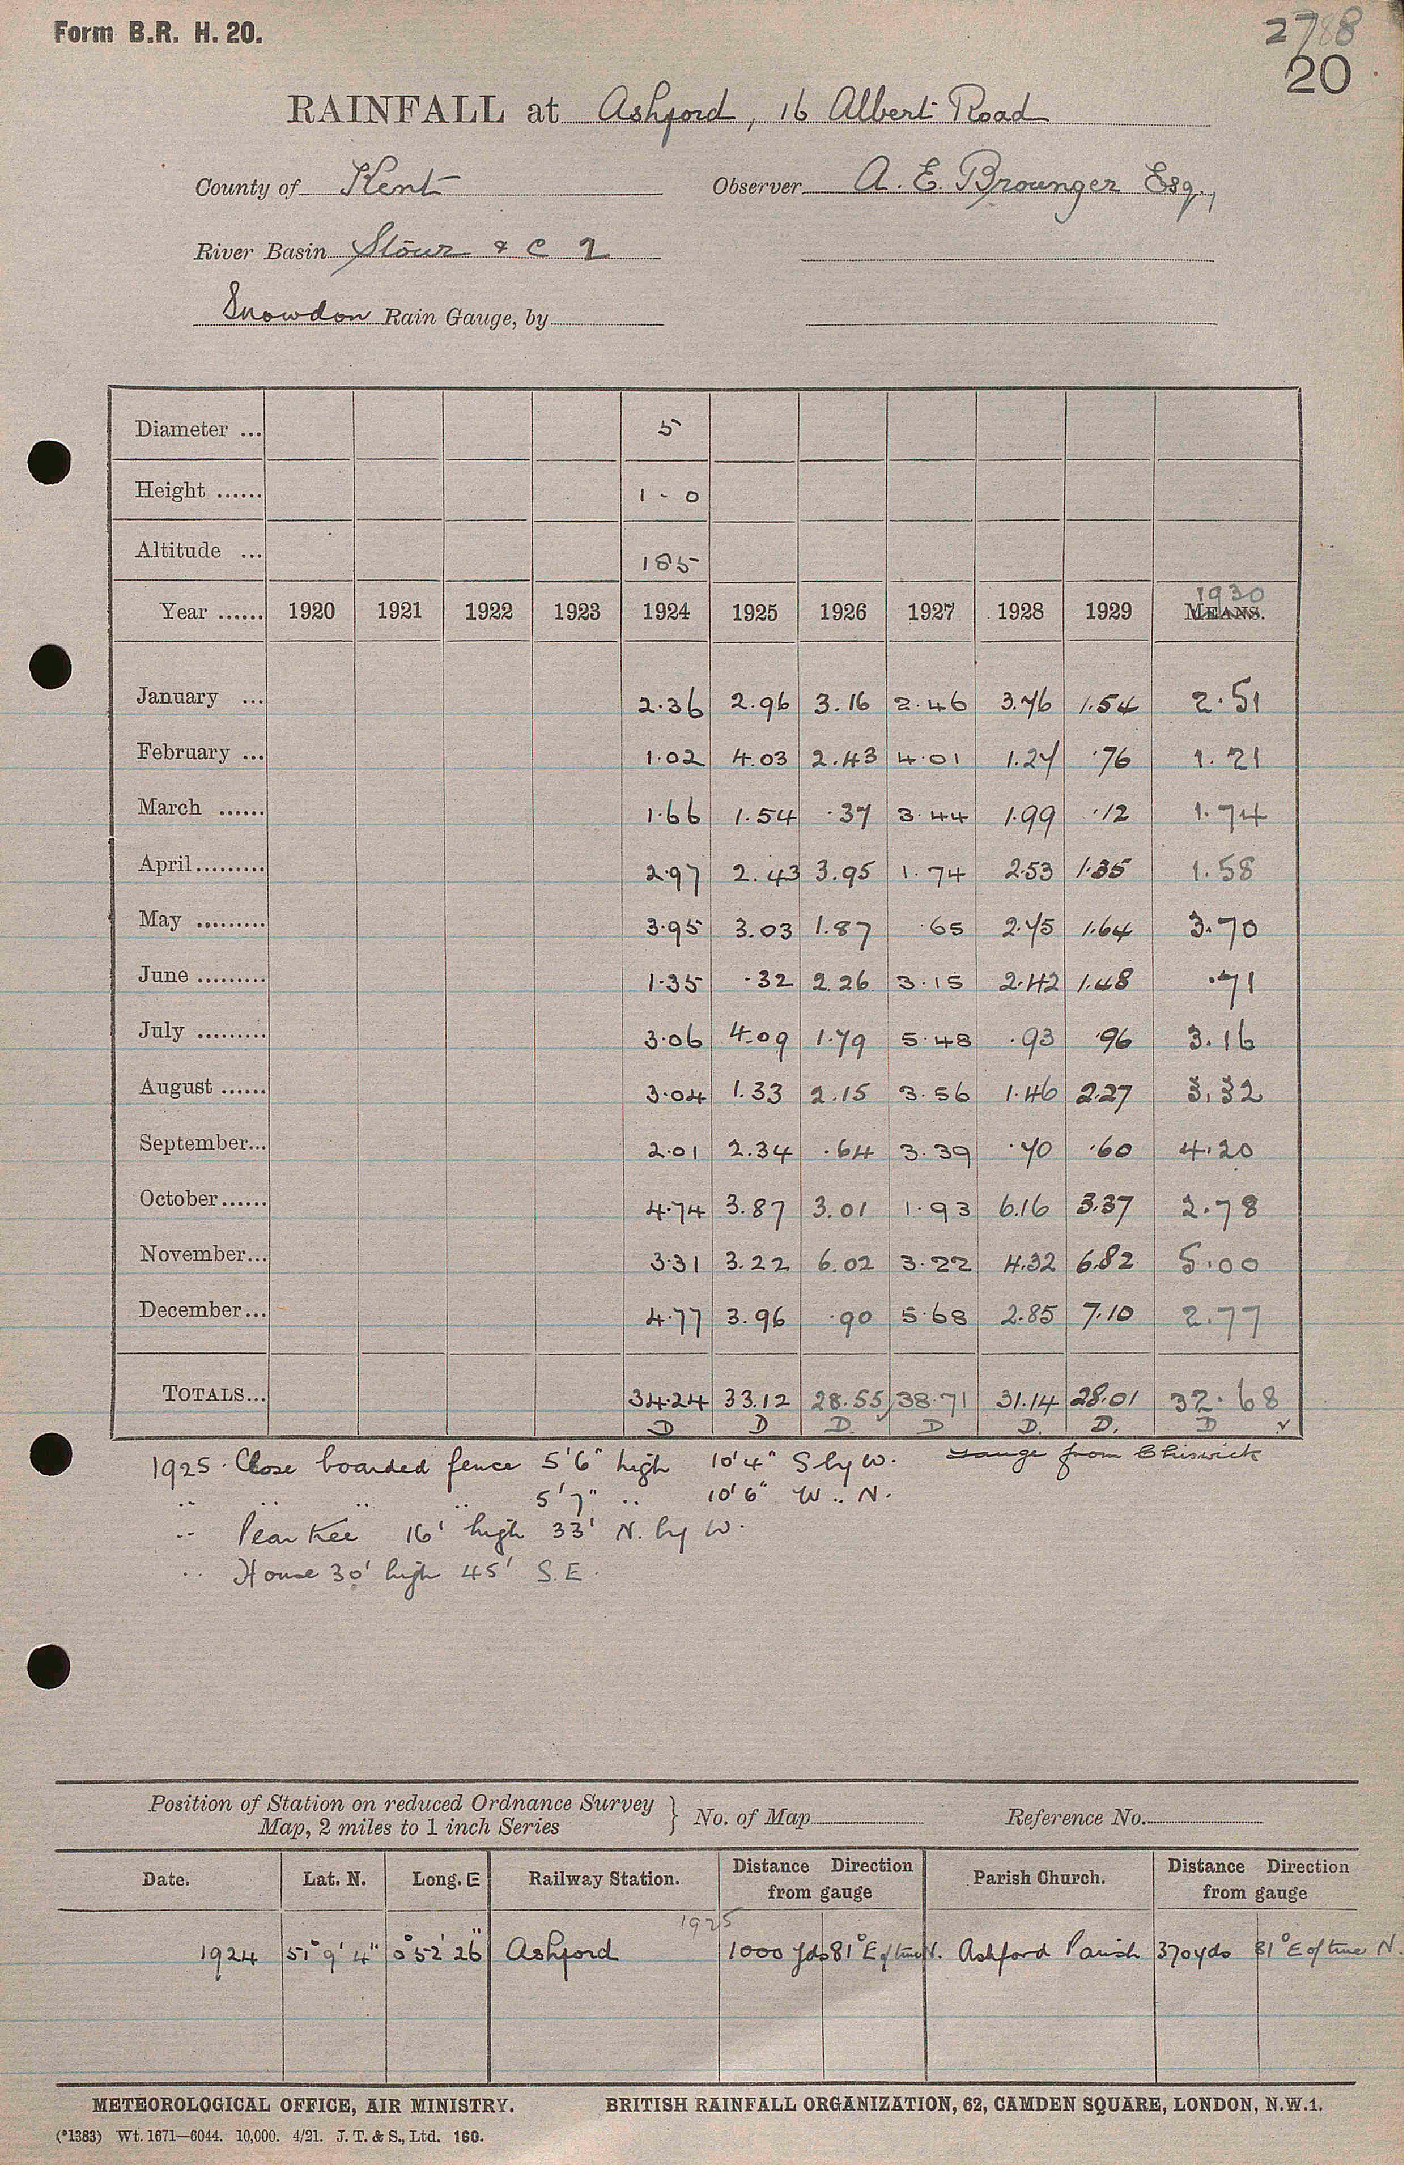 Form B.R. H. 20.
2788
20
RAINFALL at Ashford, 16 Albert Road
County of Kent Observer A. E. Brounger Esq.,
River Basin Stour & C 2
Snowdon Rain Gauge, by
Diameter ... 5
Height ...... 1 - 0
Altitude ... 185
1930
Year ...... 1920 1921 1922 1923 1924 1925 1926 1927 1928 1929 MEANS.
January ... 2.36 2.96 3.16 2.46 3.76 1.54 2.51
February ... 1.02 4.03 2.43 4.01 1.27 .76 1.21
March ...... 1.66 1.54 .37 3.44 1.99 .12 1.74
April ......... 2.97 2.43 3.95 1.74 2.53 1.35 1.58
May ......... 3.95 3.03 1.87 .65 2.75 1.64 3.70
June ......... 1.35 .32 2.26 3.15 2.42 1.48 .71
July ......... 3.06 4.09 1.79 5.48 .93 .96 3.16
August ...... 3.04 1.33 2.15 3.56 1.46 2.27 3.32
September... 2.01 2.34 .64 3.39 .70 .60 4.20
October...... 4.74 3.87 3.01 1.93 6.16 3.37 2.78
November... 3.31 3.22 6.02 3.22 4.32 6.82 5.00
December... 4.77 3.96 .90 5.68 2.85 7.10 2.77
TOTALS... 34.24 33.12 28.55 38.71 31.14 28.01 32.68
D D D. D D. D. D ✓
1925. Close boarded fence 5'6" high 10'4" S by W. Gauge from Chiswick
.. .. .. .. 5'7" .. 10'6" W .. N.
.. Pear tree 16' high 33' N. by W.
.. House 30' high 45' S.E.
Position of Station on reduced Ordnance Survey
Map, 2 miles to 1 inch Series } No. of Map Reference No.
Date. Lat. N. Long. E Railway Station. Distance Direction from gauge Parish Church. Distance Direction from gauge
1925
1924 51° 9' 4" 0° 52' 26" Ashford 1000 yds 81° E of true N. Ashford Parish 370 yds 81° E of true N.
METEOROLOGICAL OFFICE, AIR MINISTRY. BRITISH RAINFALL ORGANIZATION, 62, CAMDEN SQUARE, LONDON, N.W.1.
(*1383) Wt. 1671—6044. 10,000. 4/21. J. T. & S., Ltd. 160.